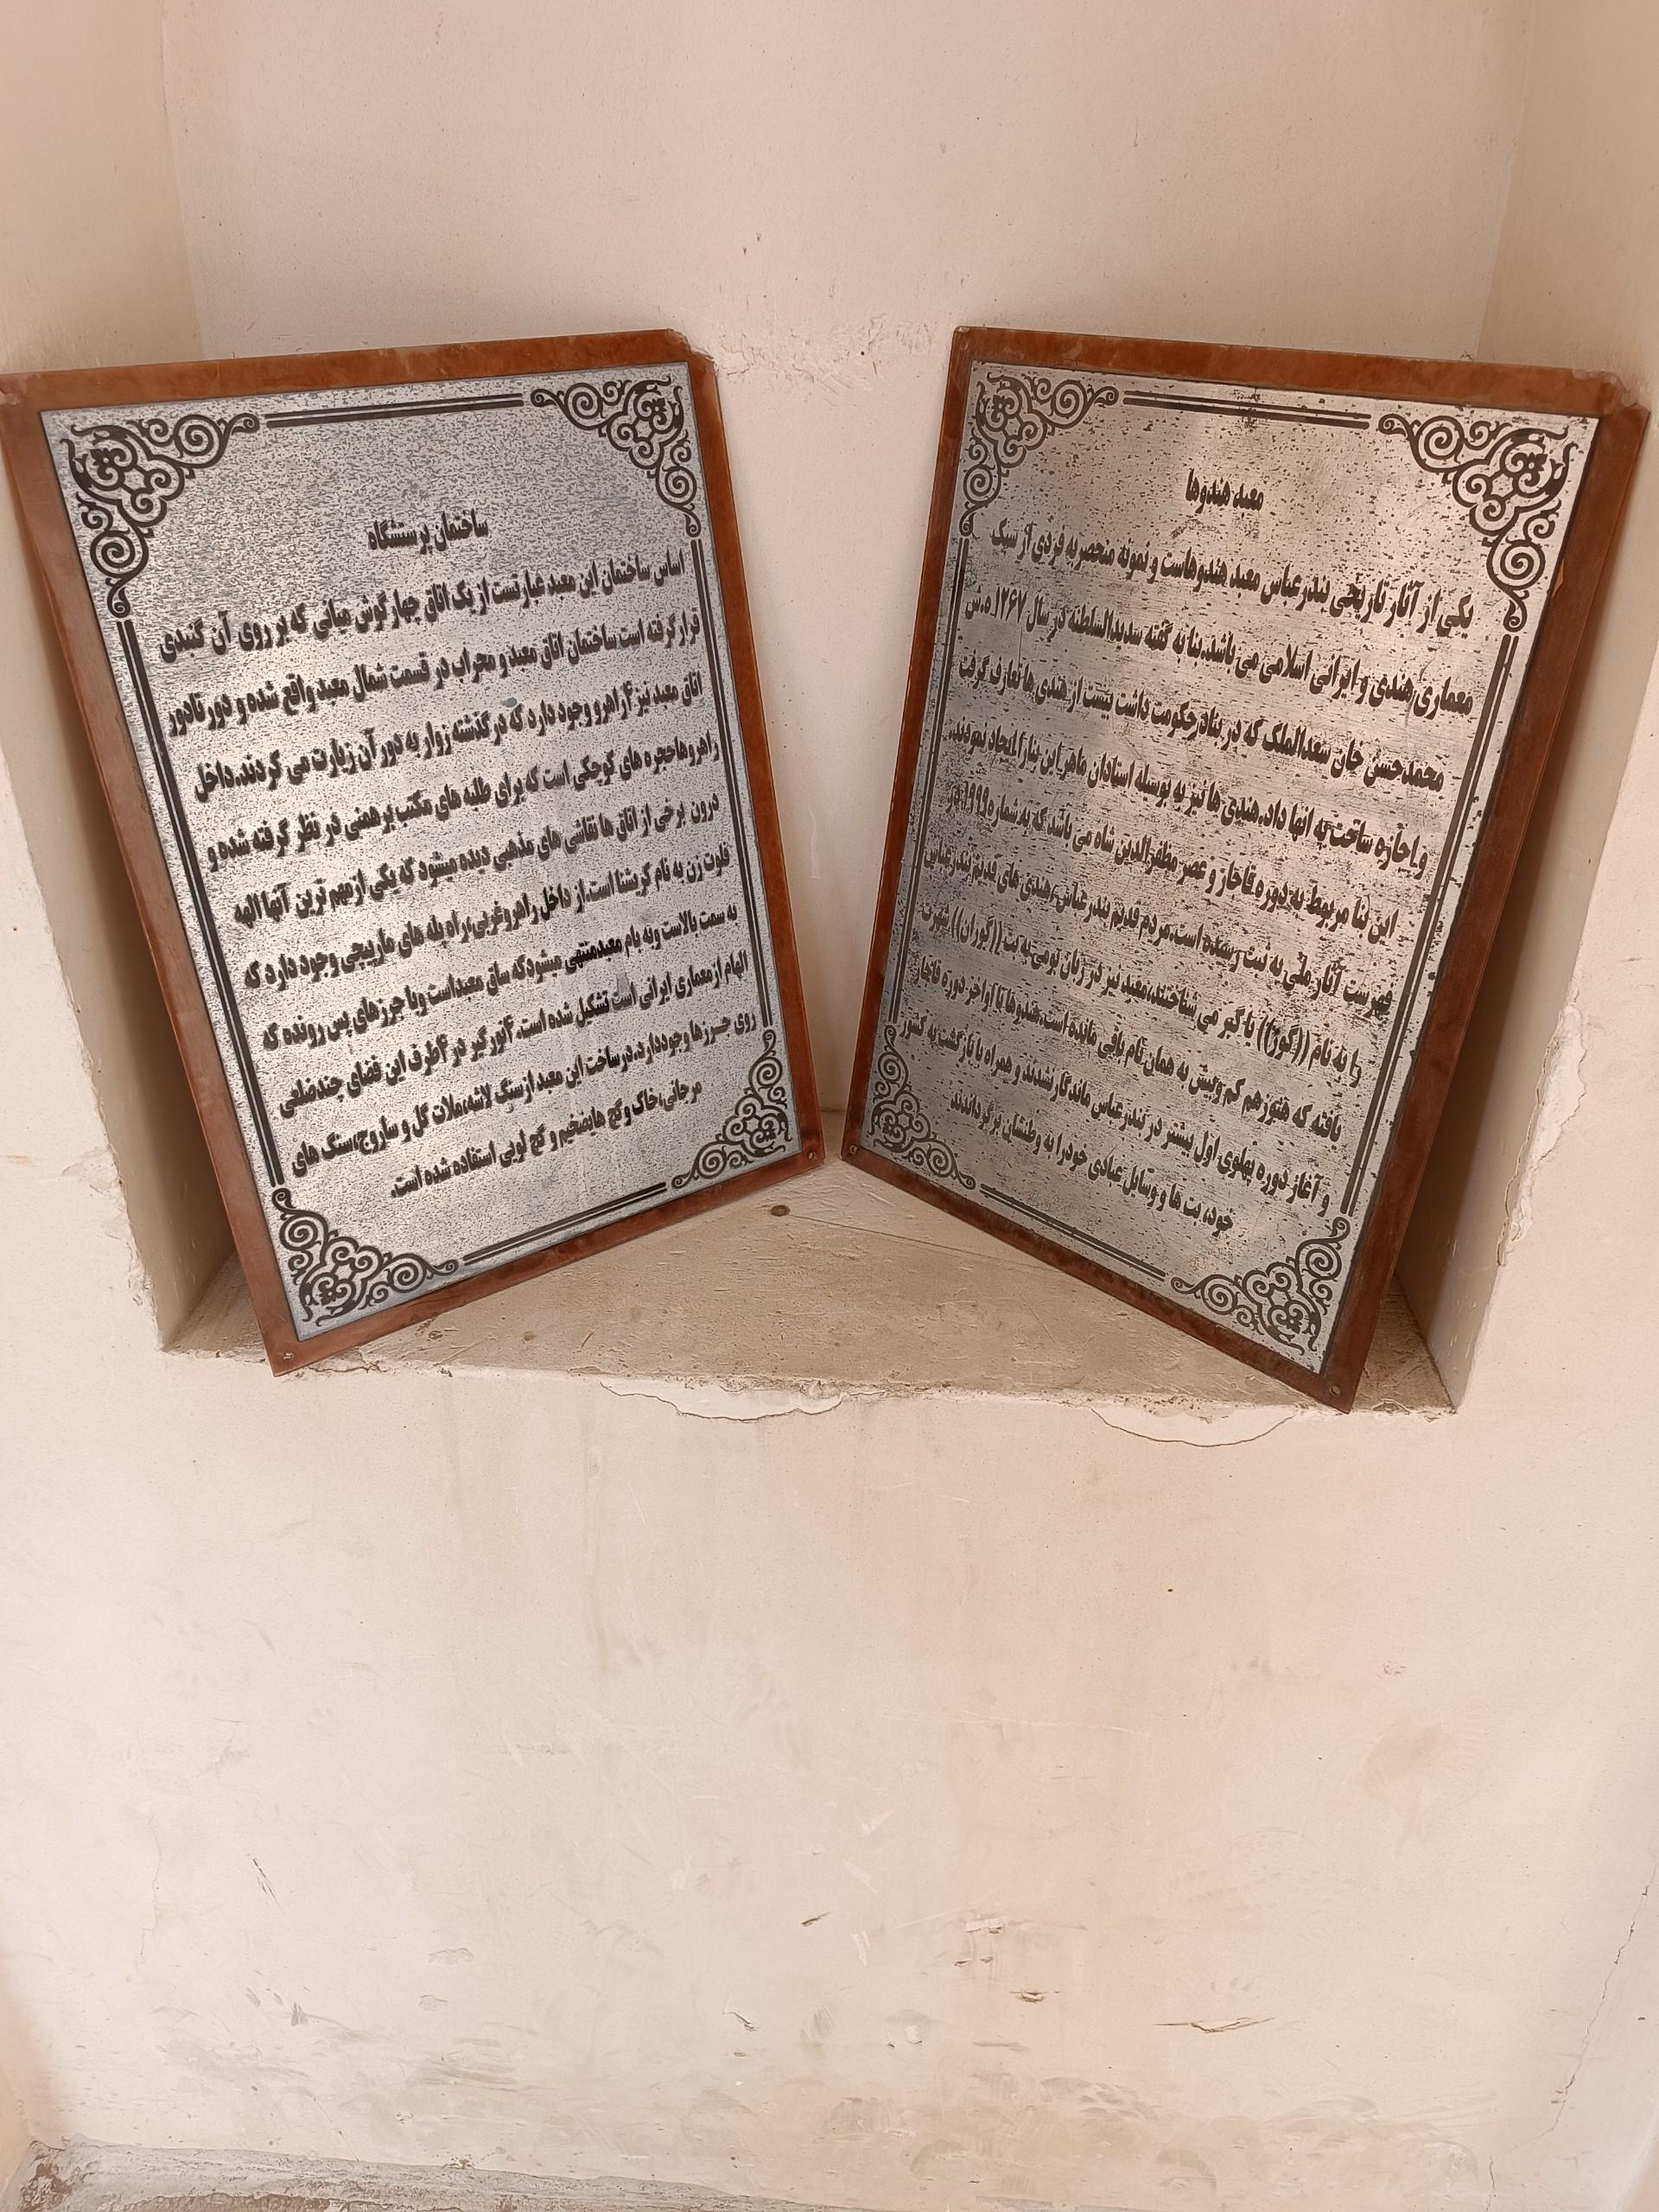 معبد هندوها
یکی از آثار تاریخی بندرعباس معبد هندوهاست و نمونه منحصر به فردی از سبک
معماری هندی و ایرانی اسلامی می باشد.بنا به گفته سدیدالسلطنه در سال ۱۲۶۷ه.ش
محمدحسن خان سعدالملک که در بنادر حکومت داشت بیست از هندی ها تعارف گرفت
و اجازه ساخت به انها داد.هندی ها نیز به بوسیله استادان ماهر این بنا را ایجاد نمودند.
این بنا مربوط به دوره قاجار و عصر مظفرالدین شاه می باشد که به شماره ۱۹۹۹ در
فهرست آثار ملی به ثبت رسیده است.مردم قدیم بندرعباس،هندی های قدیم بندرعباس
را به نام ((گور)) یا گبر می شناختند،معبد نیز در زبان بومی به بت ((گوران)) شهرت
یافته که هنوز هم کم وبیش به همان نام باقی مانده است.هندوها تا اواخر دوره قاجار
و آغاز دوره پهلوی اول بیشتر در بندرعباس ماندگار نشدند و همراه با بازگشت به کشور
خود، بت ها و وسایل عبادی خودرا به وطنشان برگرداندند
ساختمان پرستشگاه
اساس ساختمان این معبد عبارتست از یک اتاق چهارگوش میانی که بر روی آن گنبدی
قرار گرفته است ساختمان اتاق معبد و محراب در قسمت شمال معبد واقع شده و دور تادور
اتاق معبد نیز ۴راهرو وجود دارد که در گذشته زوار به دور آن زیارت می کردند.داخل
راهروها حجره های کوچکی است که برای طلبه های مکتب برهمنی در نظر گرفته شده و
درون برخی از اتاق ها نقاشی های مذهبی دیده میشود که یکی ازمهم ترین آنها الهه
فلوت زن به نام کریشنا است.از داخل راهروغربی،راه پله های مارپیچی وجود دارد که
به سمت بالاست وبه بام معبدمنتهی میشودکه ساق معبداست وبا جرزهای پس رونده که
الهام ازمعماری ایرانی است تشکیل شده است. ۴نورگیر در ۴طرف این فضای چندضلعی
روی جـرزها وجوددارد.درساخت این معبد ازسنگ لاشه،ملات گل و ساروج،سنگ های
مرجانی،خاک وگچ هایضخیم و گچ لویی استفاده شده است.